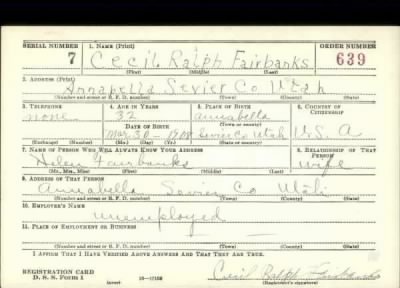 SERIAL NUMBER 1. NAME (Print) ORDER NUMBER
7 Cecil Ralph Fairbanks 639
(First) (Middle) (Last)
2. ADDRESS (Print)
Annabella Sevier Co Utah
(Number and street or R. F. D. number) (Town) (County) (State)
3. TELEPHONE 4. AGE IN YEARS 5. PLACE OF BIRTH 6. COUNTRY OF CITIZENSHIP
none 32 Annabella
(Town or county)
DATE OF BIRTH
Mar. 30 - 1908 Sevier Co Utah U.S.A
(Exchange) (Number) (Mo.) (Day) (Yr.) (State or country)
7. NAME OF PERSON WHO WILL ALWAYS KNOW YOUR ADDRESS 8. RELATIONSHIP OF THAT PERSON
Helen Fairbanks wife
(Mr., Mrs., Miss) (First) (Middle) (Last)
9. ADDRESS OF THAT PERSON
Annabella Sevier Co Utah
(Number and street or R. F. D. number) (Town) (County) (State)
10. EMPLOYER'S NAME
unemployed
11. PLACE OF EMPLOYMENT OR BUSINESS
(Number and street or R. F. D. number) (Town) (County) (State)
I AFFIRM THAT I HAVE VERIFIED ABOVE ANSWERS AND THAT THEY ARE TRUE.
REGISTRATION CARD
D. S. S. FORM 1 16-17105 Cecil Ralph Fairbanks
(Registrant's signature)